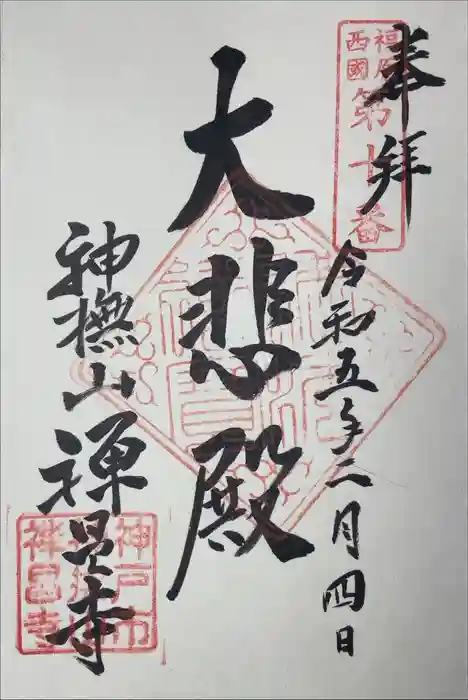 奉拝
福原
西國
第十番
令和五年二月四日
大悲殿
神撫山
禅昌寺
神戸市
禅昌寺